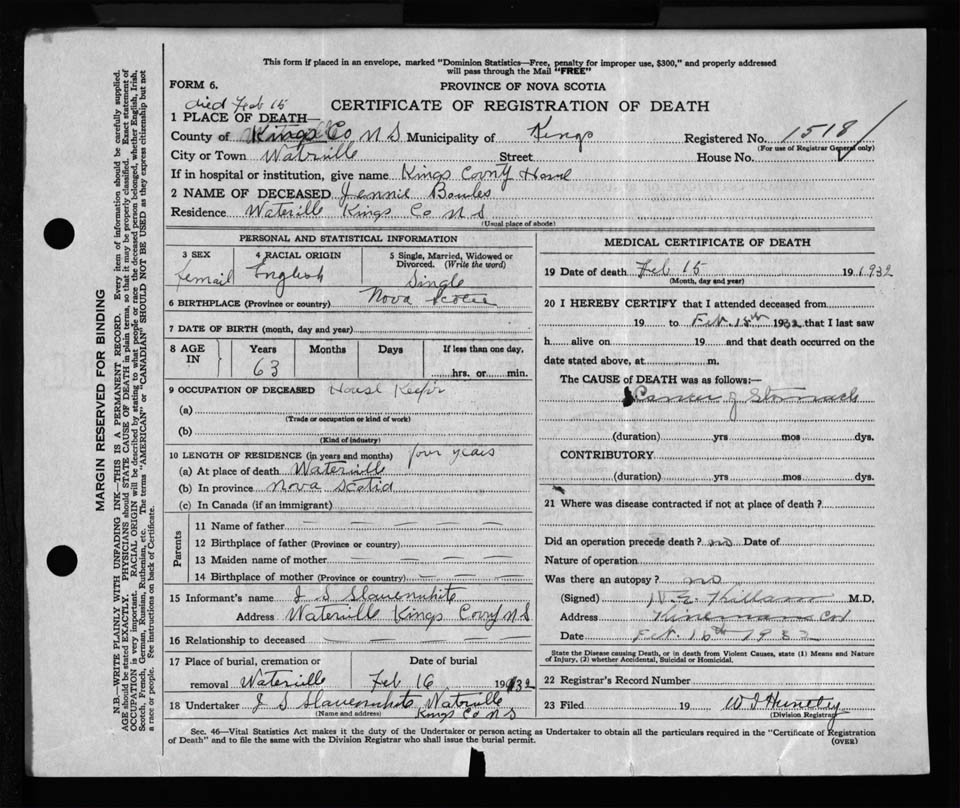 This form if placed in an envelope, marked "Dominion Statistics—Free, penalty for improper use, $300," and properly addressed
will pass through the Mail "FREE"
FORM 6.
PROVINCE OF NOVA SCOTIA
died Feb 15
CERTIFICATE OF REGISTRATION OF DEATH
1 PLACE OF DEATH—
County of Kings Co N S Municipality of Kings Registered No. 1518
(For use of Registrar General only)
City or Town Waterville Street House No.
If in hospital or institution, give name Kings County Home
2 NAME OF DECEASED Jennie Bowles
Residence Waterville Kings Co N S
(Usual place of abode)
PERSONAL AND STATISTICAL INFORMATION
3 SEX
Femail
4 RACIAL ORIGIN
English
5 Single, Married, Widowed or
Divorced. (Write the word)
Single
6 BIRTHPLACE (Province or country) Nova Scotia
7 DATE OF BIRTH (month, day and year)
8 AGE IN
Years Months Days If less than one day,
63 hrs. or min.
9 OCCUPATION OF DECEASED House Keepr
(a)
(Trade or occupation or kind of work)
(b)
(Kind of industry)
10 LENGTH OF RESIDENCE (in years and months) four years
(a) At place of death Waterville
(b) In province Nova Scotia
(c) In Canada (if an immigrant)
Parents
11 Name of father
12 Birthplace of father (Province or country)
13 Maiden name of mother
14 Birthplace of mother (Province or country)
15 Informant's name J S Slauenwhite
Address Waterville Kings Conty N S
16 Relationship to deceased
17 Place of burial, cremation or Date of burial
removal Waterville Feb 16 1932
18 Undertaker J S Slauenwhite Waterville
(Name and address) Kings Co N S
MEDICAL CERTIFICATE OF DEATH
19 Date of death Feb 15 19 1932
(Month, day and year)
20 I HEREBY CERTIFY that I attended deceased from
19 to Feb. 15th 1932 that I last saw
h alive on 19 and that death occurred on the
date stated above, at m.
The CAUSE of DEATH was as follows:—
Cancer of Stomach
(duration) yrs mos dys.
CONTRIBUTORY
(duration) yrs mos dys.
21 Where was disease contracted if not at place of death?
Did an operation precede death? no Date of
Nature of operation
Was there an autopsy? no
(Signed) Killam M.D.
Address
Date Feb. 16th 1932
State the Disease causing Death, or in death from Violent Causes, state (1) Means and Nature
of Injury, (2) whether Accidental, Suicidal or Homicidal.
22 Registrar's Record Number
23 Filed 19 Huntley
(Division Registrar)
Sec. 46—Vital Statistics Act makes it the duty of the Undertaker or person acting as Undertaker to obtain all the particulars required in the "Certificate of Registration
of Death" and to file the same with the Division Registrar who shall issue the burial permit.
(OVER)
MARGIN RESERVED FOR BINDING
N.B.—WRITE PLAINLY WITH UNFADING INK—THIS IS A PERMANENT RECORD. Every item of information should be carefully supplied.
AGE should be stated EXACTLY. PHYSICIANS should STATE CAUSE OF DEATH in plain terms, so that it may be properly classified. Exact statement of
OCCUPATION is very important. RACIAL ORIGIN will be described by stating to what people or race the deceased person belonged, whether English, Irish,
Scotch, French, German, Russian, Ruthenian, etc. The terms "AMERICAN" or "CANADIAN" SHOULD NOT BE USED as they express citizenship but not
a race or people. See instructions on back of Certificate.